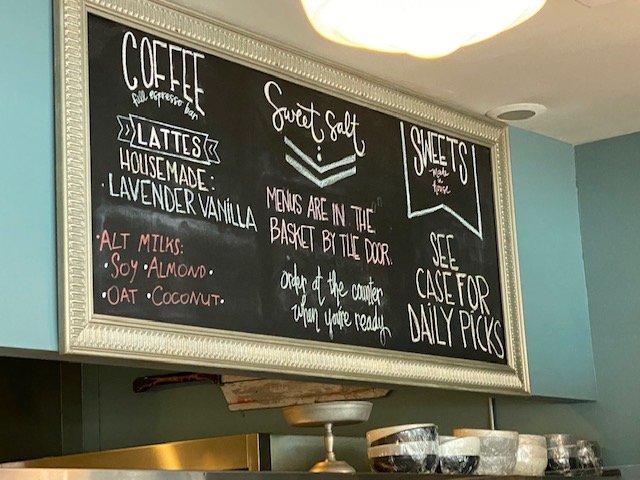 COFFEE
full espresso bar
LATTES
HOUSEMADE:
· LAVENDER VANILLA
· ALT MILKS:
· SOY · ALMOND ·
· OAT · COCONUT ·
Sweet Salt
MENUS ARE IN THE
BASKET BY THE DOOR.
order at the counter
when you're ready
SWEETS
made
in
house
SEE
CASE FOR
DAILY PICKS